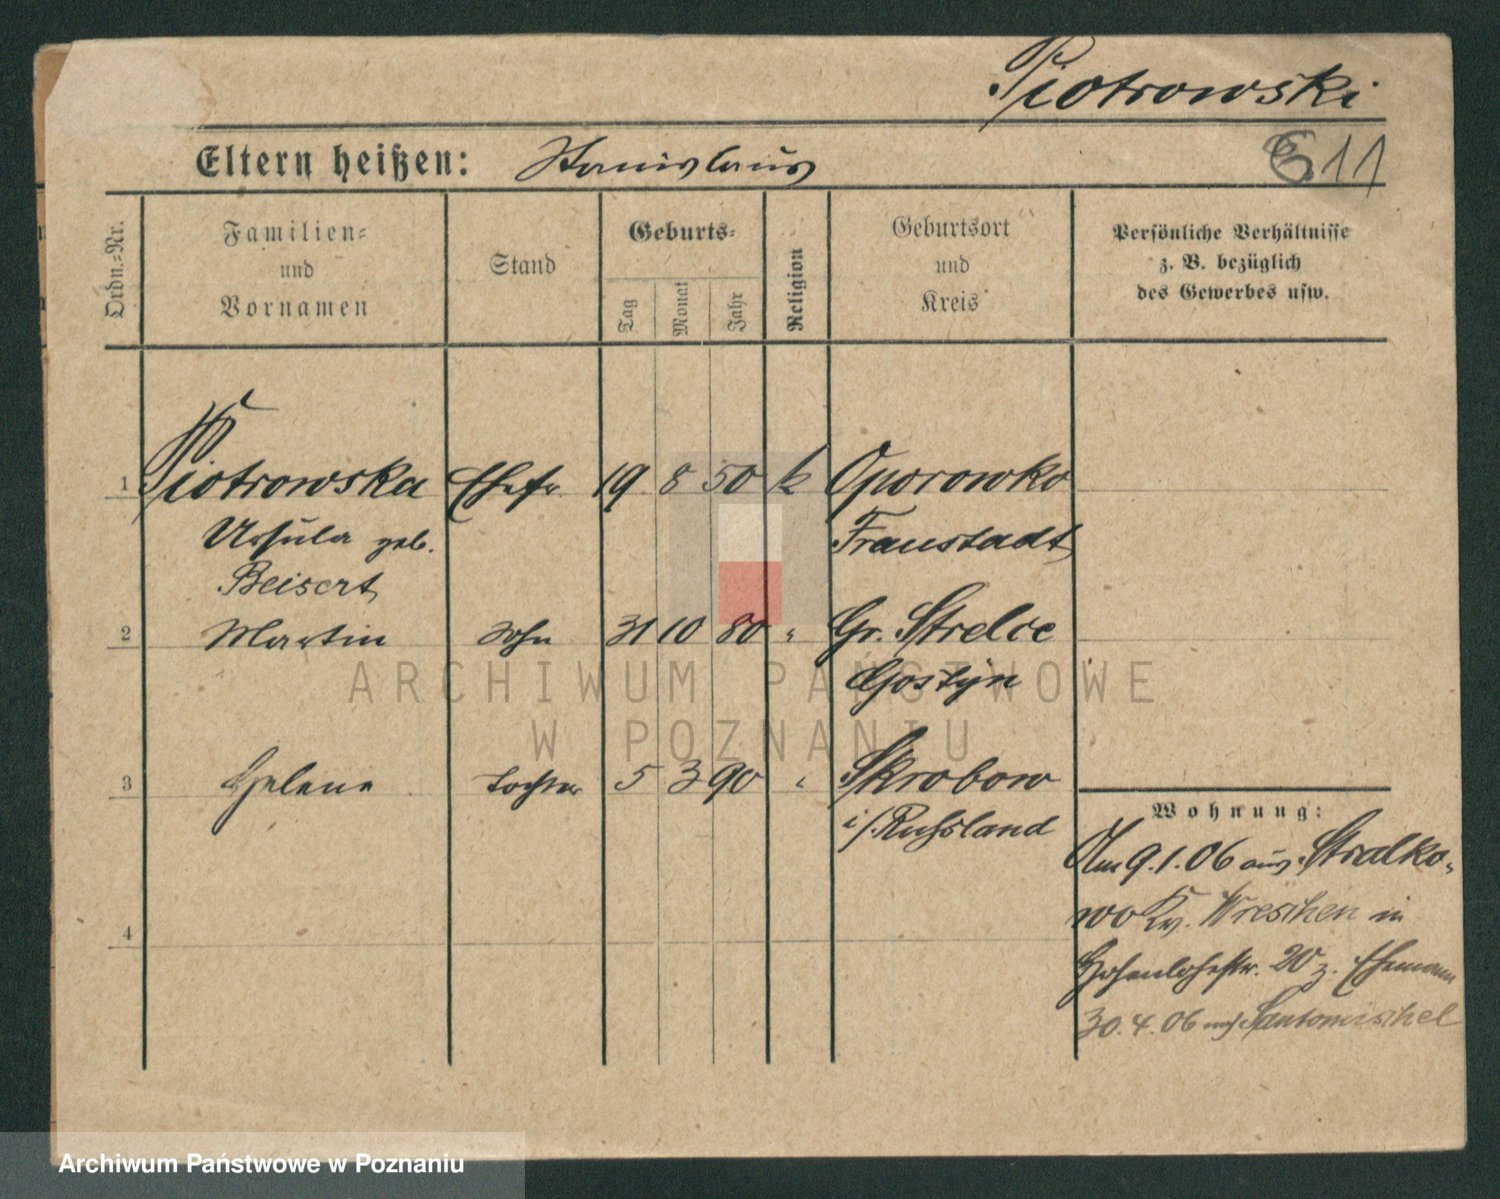 Piotrowski
E 11
Eltern heißen: Stanislaus
Ordn.-Nr.
Familien- und Vornamen
Stand
Geburts-
Tag
Monat
Jahr
Religion
Geburtsort und Kreis
Persönliche Verhältnisse
z. B. bezüglich
des Gewerbes usw.
1 Piotrowska Ehefr. 19 8 50 k Oporowko
Ursula geb. Fraustadt
Beisert
2 Martin Sohn 31 10 80 " Gr. Strelce
Gostyn
3 Helene Tochter 5 3 90 " Skrobow
i/Russland
4
Wohnung:
Am 9.1.06 aus Stralko-
wo Kr. Wreschen in
Hohenlohestr. 20 z. Ehemann
30.4.06 nach Santomischel
ARCHIWUM PAŃSTWOWE
W POZNANIU
Archiwum Państwowe w Poznaniu